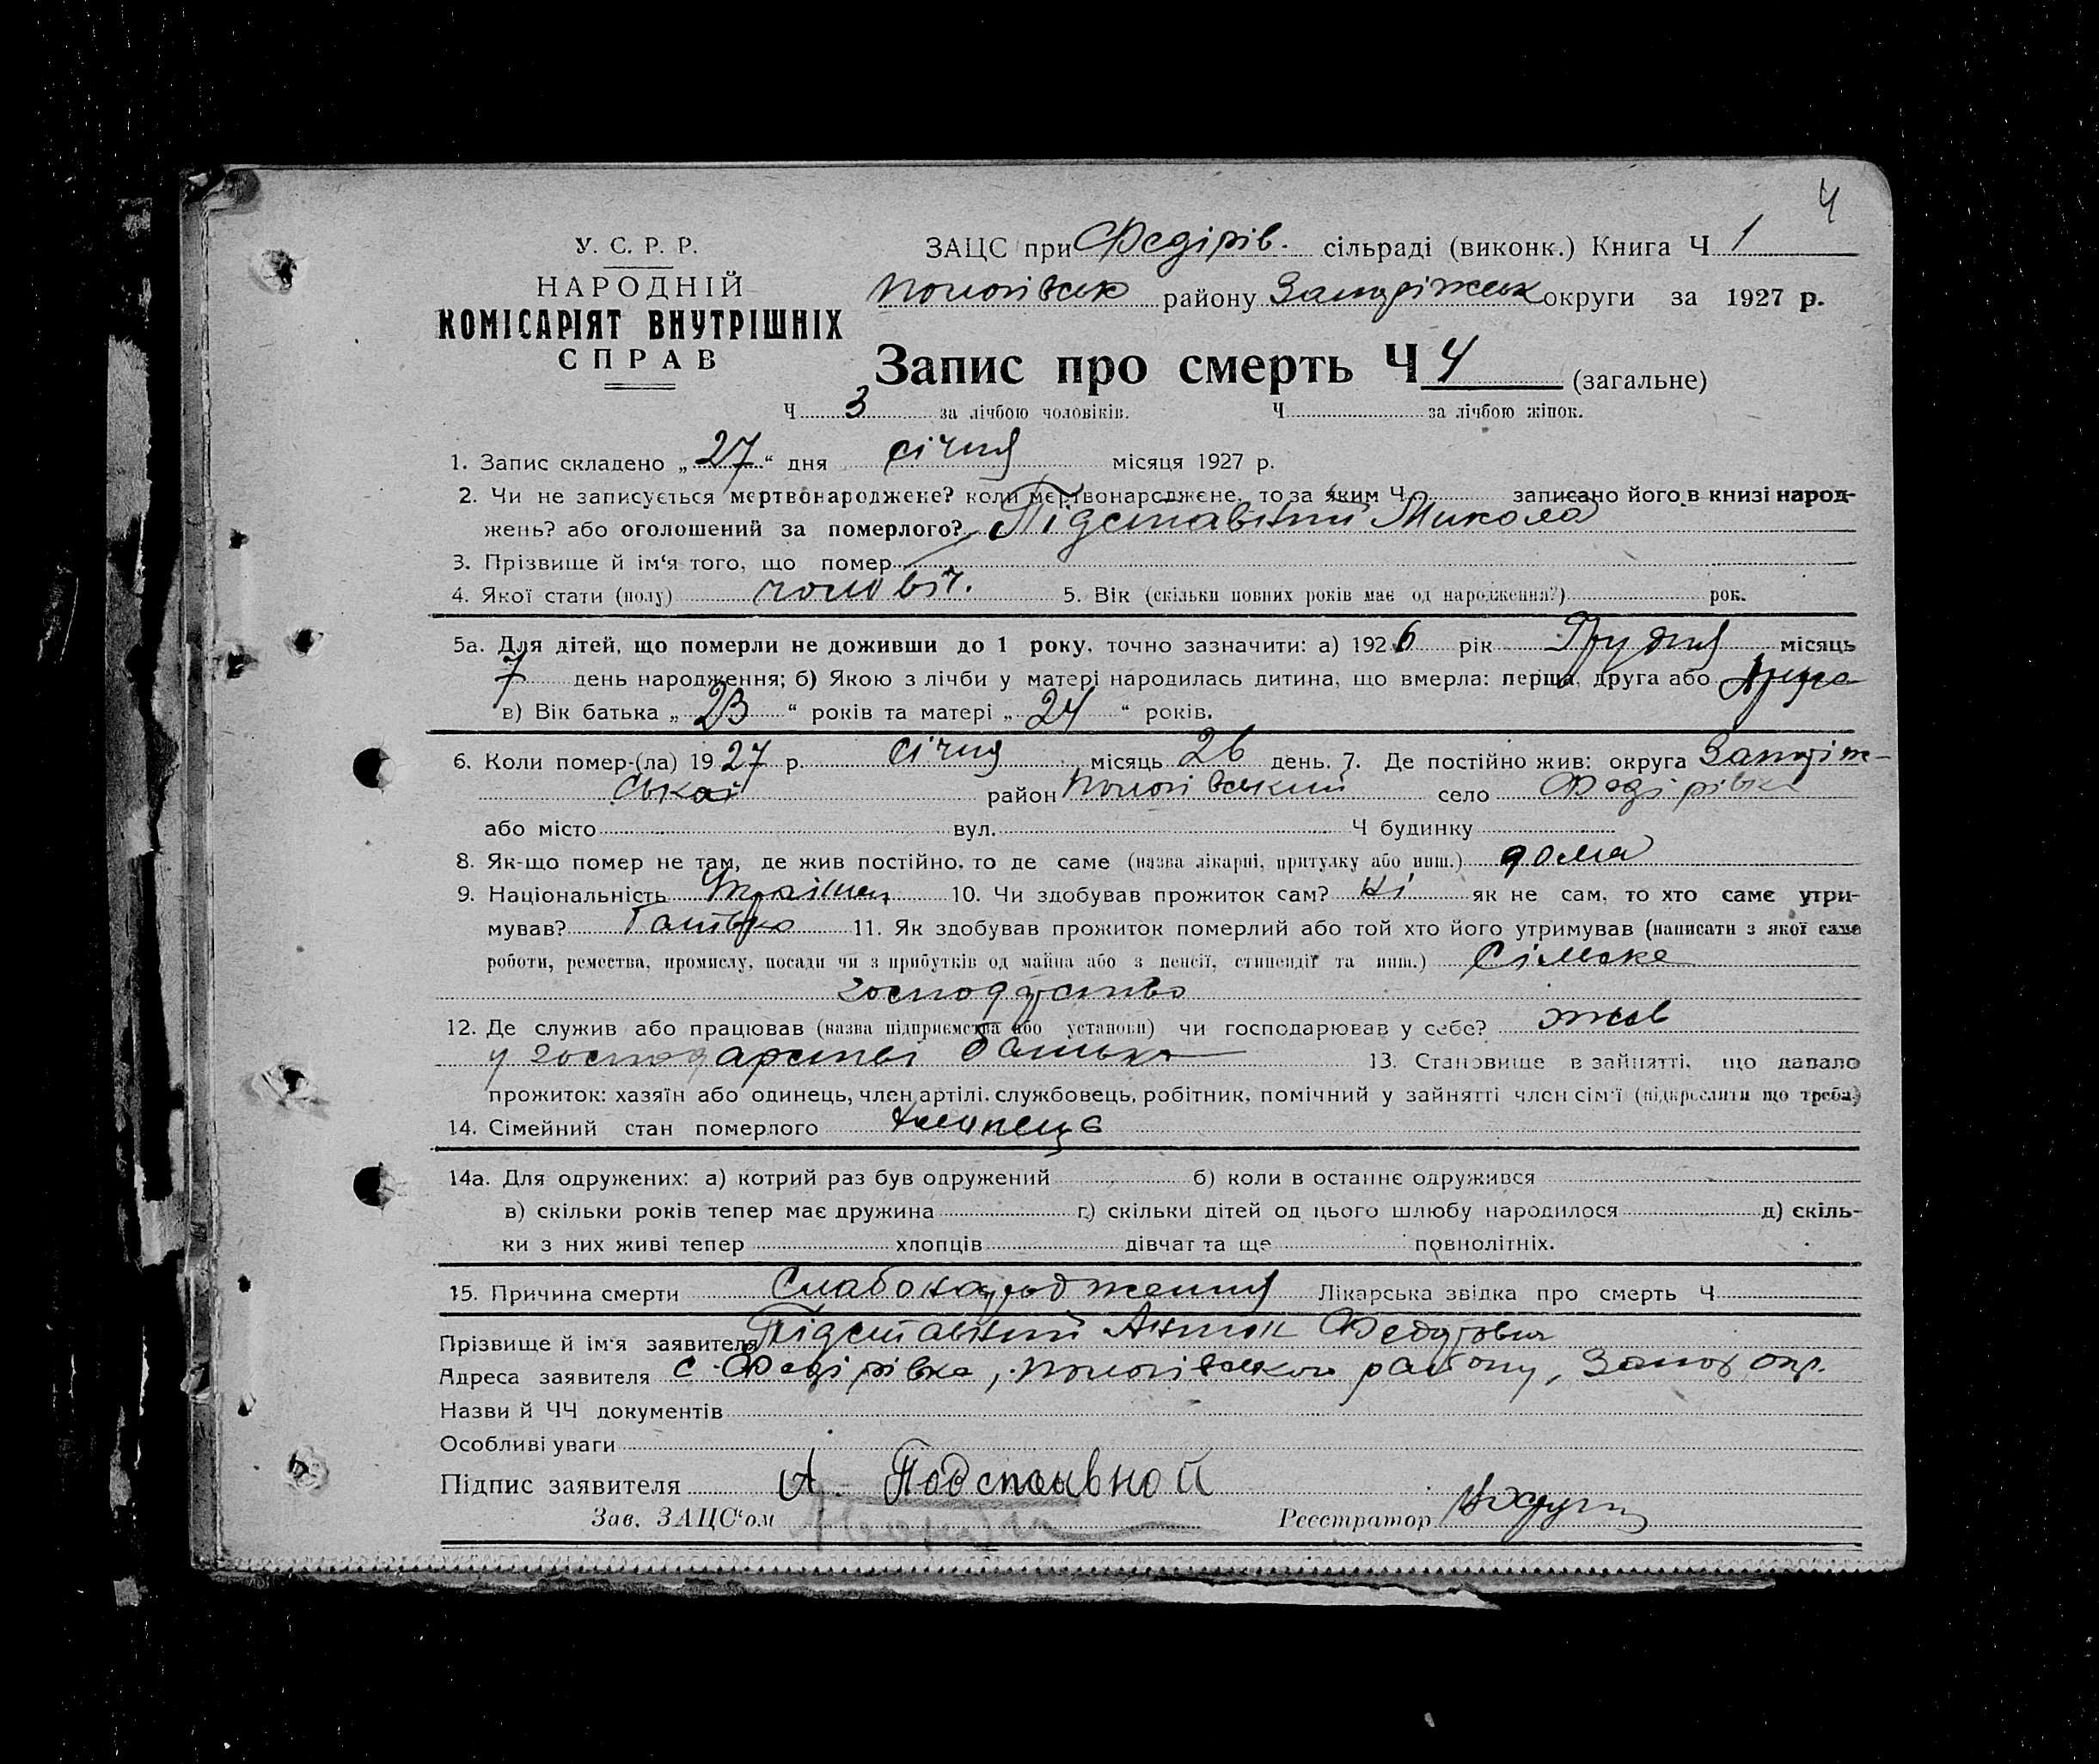 4
У. С. Р. Р.
НАРОДНІЙ
КОМІСАРІЯТ ВНУТРІШНІХ
СПРАВ
ЗАЦС при Федірів. сільраді (виконк.) Книга Ч 1
Пологівськ району Запоріжськ округи за 1927 р.
Запис про смерть Ч 4 (загальне)
Ч 3 за лічбою чоловіків. Ч за лічбою жінок.
1. Запис складено „27“ дня січня місяця 1927 р.
2. Чи не записується мертвонароджене? коли мертвонароджене, то за яким Ч. записано його в книзі народ-
жень? або оголошений за померлого? Підставний Микола
3. Прізвище й ім‘я того, що помер
4. Якої стати (полу) чоловіч. 5. Вік (скільки повних років має од народження?) рок.
5а. Для дітей, що померли не доживши до 1 року, точно зазначити: а) 1926 рік Грудня місяць
7 день народження; б) Якою з лічби у матері народилась дитина, що вмерла: перша, друга або друга
в) Вік батька „23“ років та матері „24“ років.
6. Коли помер-(ла) 1927 р. січня місяць 26 день. 7. Де постійно жив: округа Запоріж-
ської район Пологівський село Федірівка
або місто вул. Ч будинку
8. Як-що помер не там, де жив постійно, то де саме (назва лікарні, притулку або инш.) дома
9. Національність Українец 10. Чи здобував прожиток сам? Ні як не сам, то хто саме утри-
мував? Батько 11. Як здобував прожиток померлий або той хто його утримував (написати з якої саме
роботи, ремества, промислу, посади чи з прибутків од майна або з пенсії, стипендії та инш.) Сільське
господарство
12. Де служив або працював (назва підприємства або установи) чи господарював у себе? жив
у господарстві батька 13. Становище в зайнятті, що давало
прожиток: хазяїн або одинець, член артілі, службовець, робітник, помічний у зайнятті член сім‘ї (підкреслити що треба)
14. Сімейний стан померлого
14а. Для одружених: а) котрий раз був одружений б) коли в останнє одружився
в) скільки років тепер має дружина г) скільки дітей од цього шлюбу народилося д) скіль-
ки з них живі тепер хлопців дівчат та ще повнолітніх.
15. Причина смерти Слабонародження Лікарська звідка про смерть Ч
Прізвище й ім‘я заявителя Підставний Антон Федорович
Адреса заявителя с. Федірівка, Пологівського району, Запор окр.
Назви й ЧЧ документів
Особливі уваги
Підпис заявителя А. Подставной
Зав. ЗАЦС‘ом Реєстратор